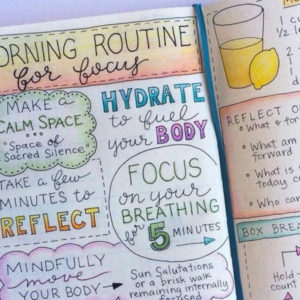 ORNING ROUTINE
for focus
MAKE a
CALM SPACE...
"Space of
Sacred Silence"
HYDRATE
to fuel
your BODY
TAKE a few
MINUTES to
REFLECT
FOCUS
on your
BREATHING
for 5
MINUTES
MINDFULLY
move
YOUR BODY
Sun Salutations
or a brisk walk
remaining internally
focused
1 c
1/2 l
REFLECT O
What
forward
What is
today c
Who can
BOX BREA
Hold
count